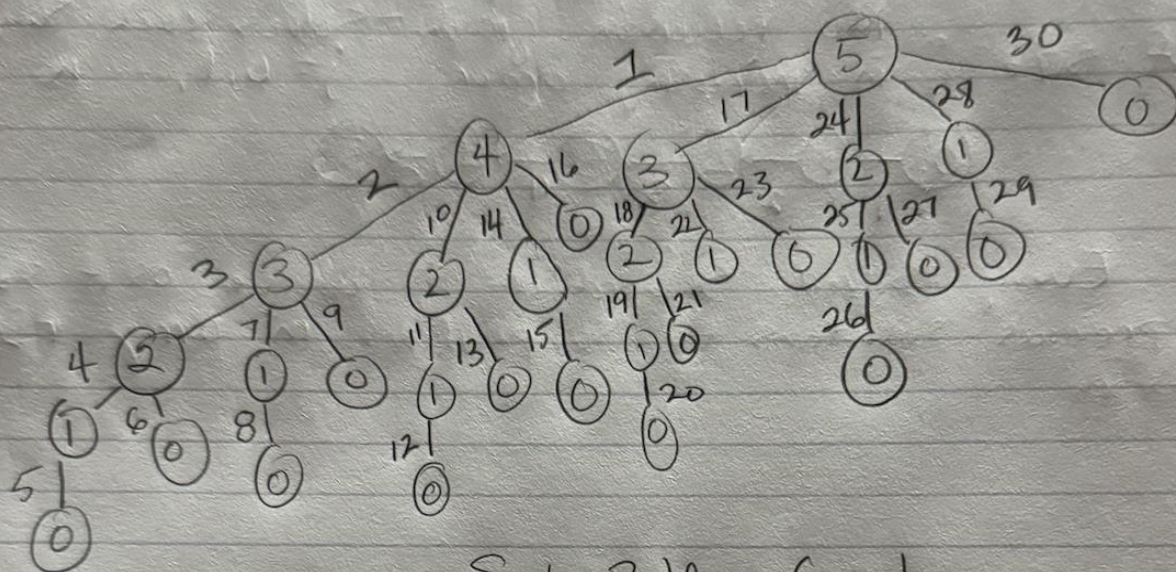 5 30
1 17 24 28 0
4 16 3 23 2 1
2 10 14 0 18 22 25 27 29
3 3 2 1 2 1 0 1 0 0
7 9 11 13 15 19 21 26
4 2 1 0 1 0 0 1 0 0
1 6 0 8 12 20
5 0 0 0
0